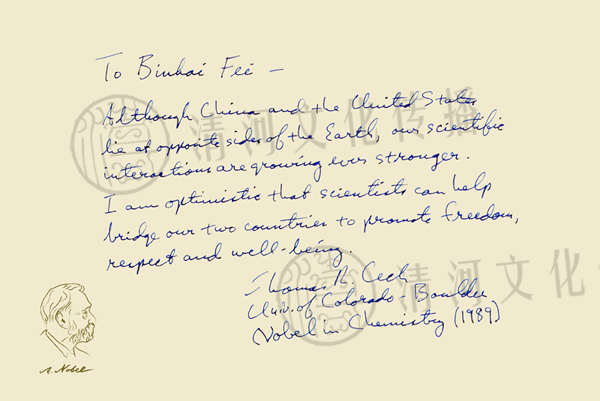 To Binhai Fei —
Although China and the United States
lie at opposite sides of the Earth, our scientific
interactions are growing ever stronger.
I am optimistic that scientists can help
bridge our two countries to promote freedom,
respect and well-being.
Thomas R. Cech
Univ. of Colorado - Boulder
Nobel in Chemistry (1989)
A. Nobel
清河文化传播
清河文化传